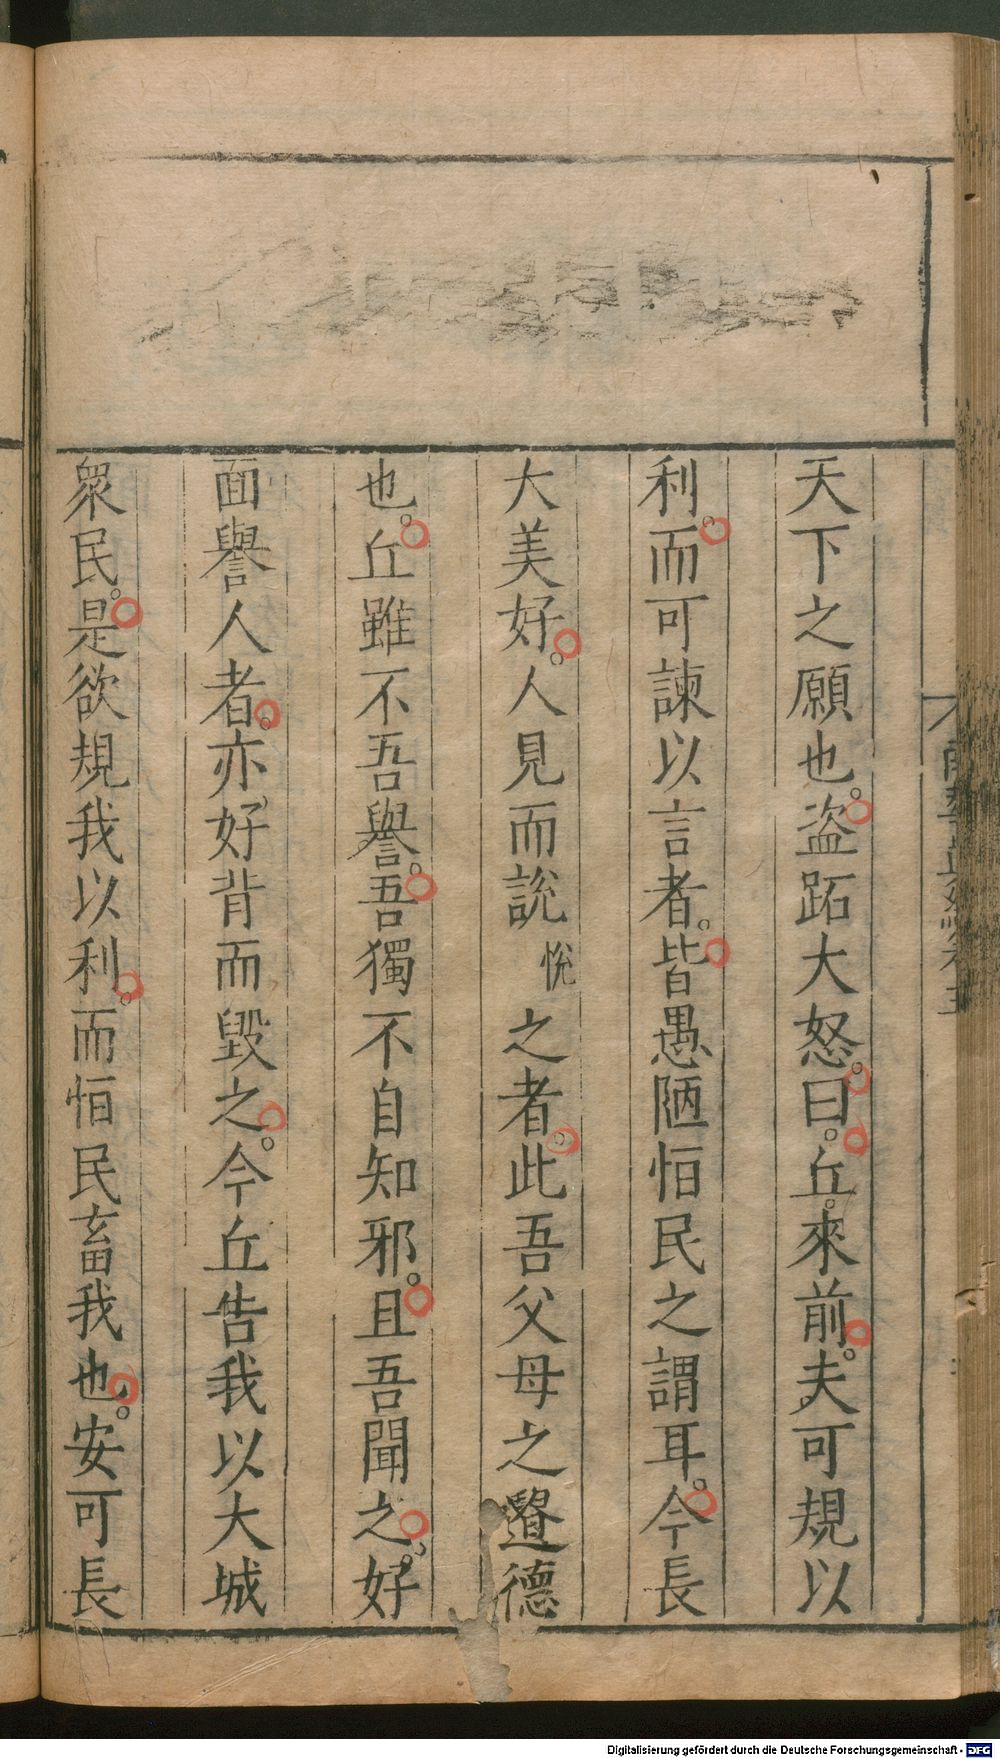 天下之願也。盜跖大怒。曰。丘。來前。夫可規以
利。而可諫以言者。皆愚陋恒民之謂耳。今長
大美好。人見而說悅之者。此吾父母之遺德
也。丘雖不吾譽。吾獨不自知邪。且吾聞之。好
面譽人者。亦好背而毀之。今丘告我以大城
眾民。是欲規我以利。而恒民畜我也。安可長
Digitalisierung gefördert durch die Deutsche Forschungsgemeinschaft - DFG